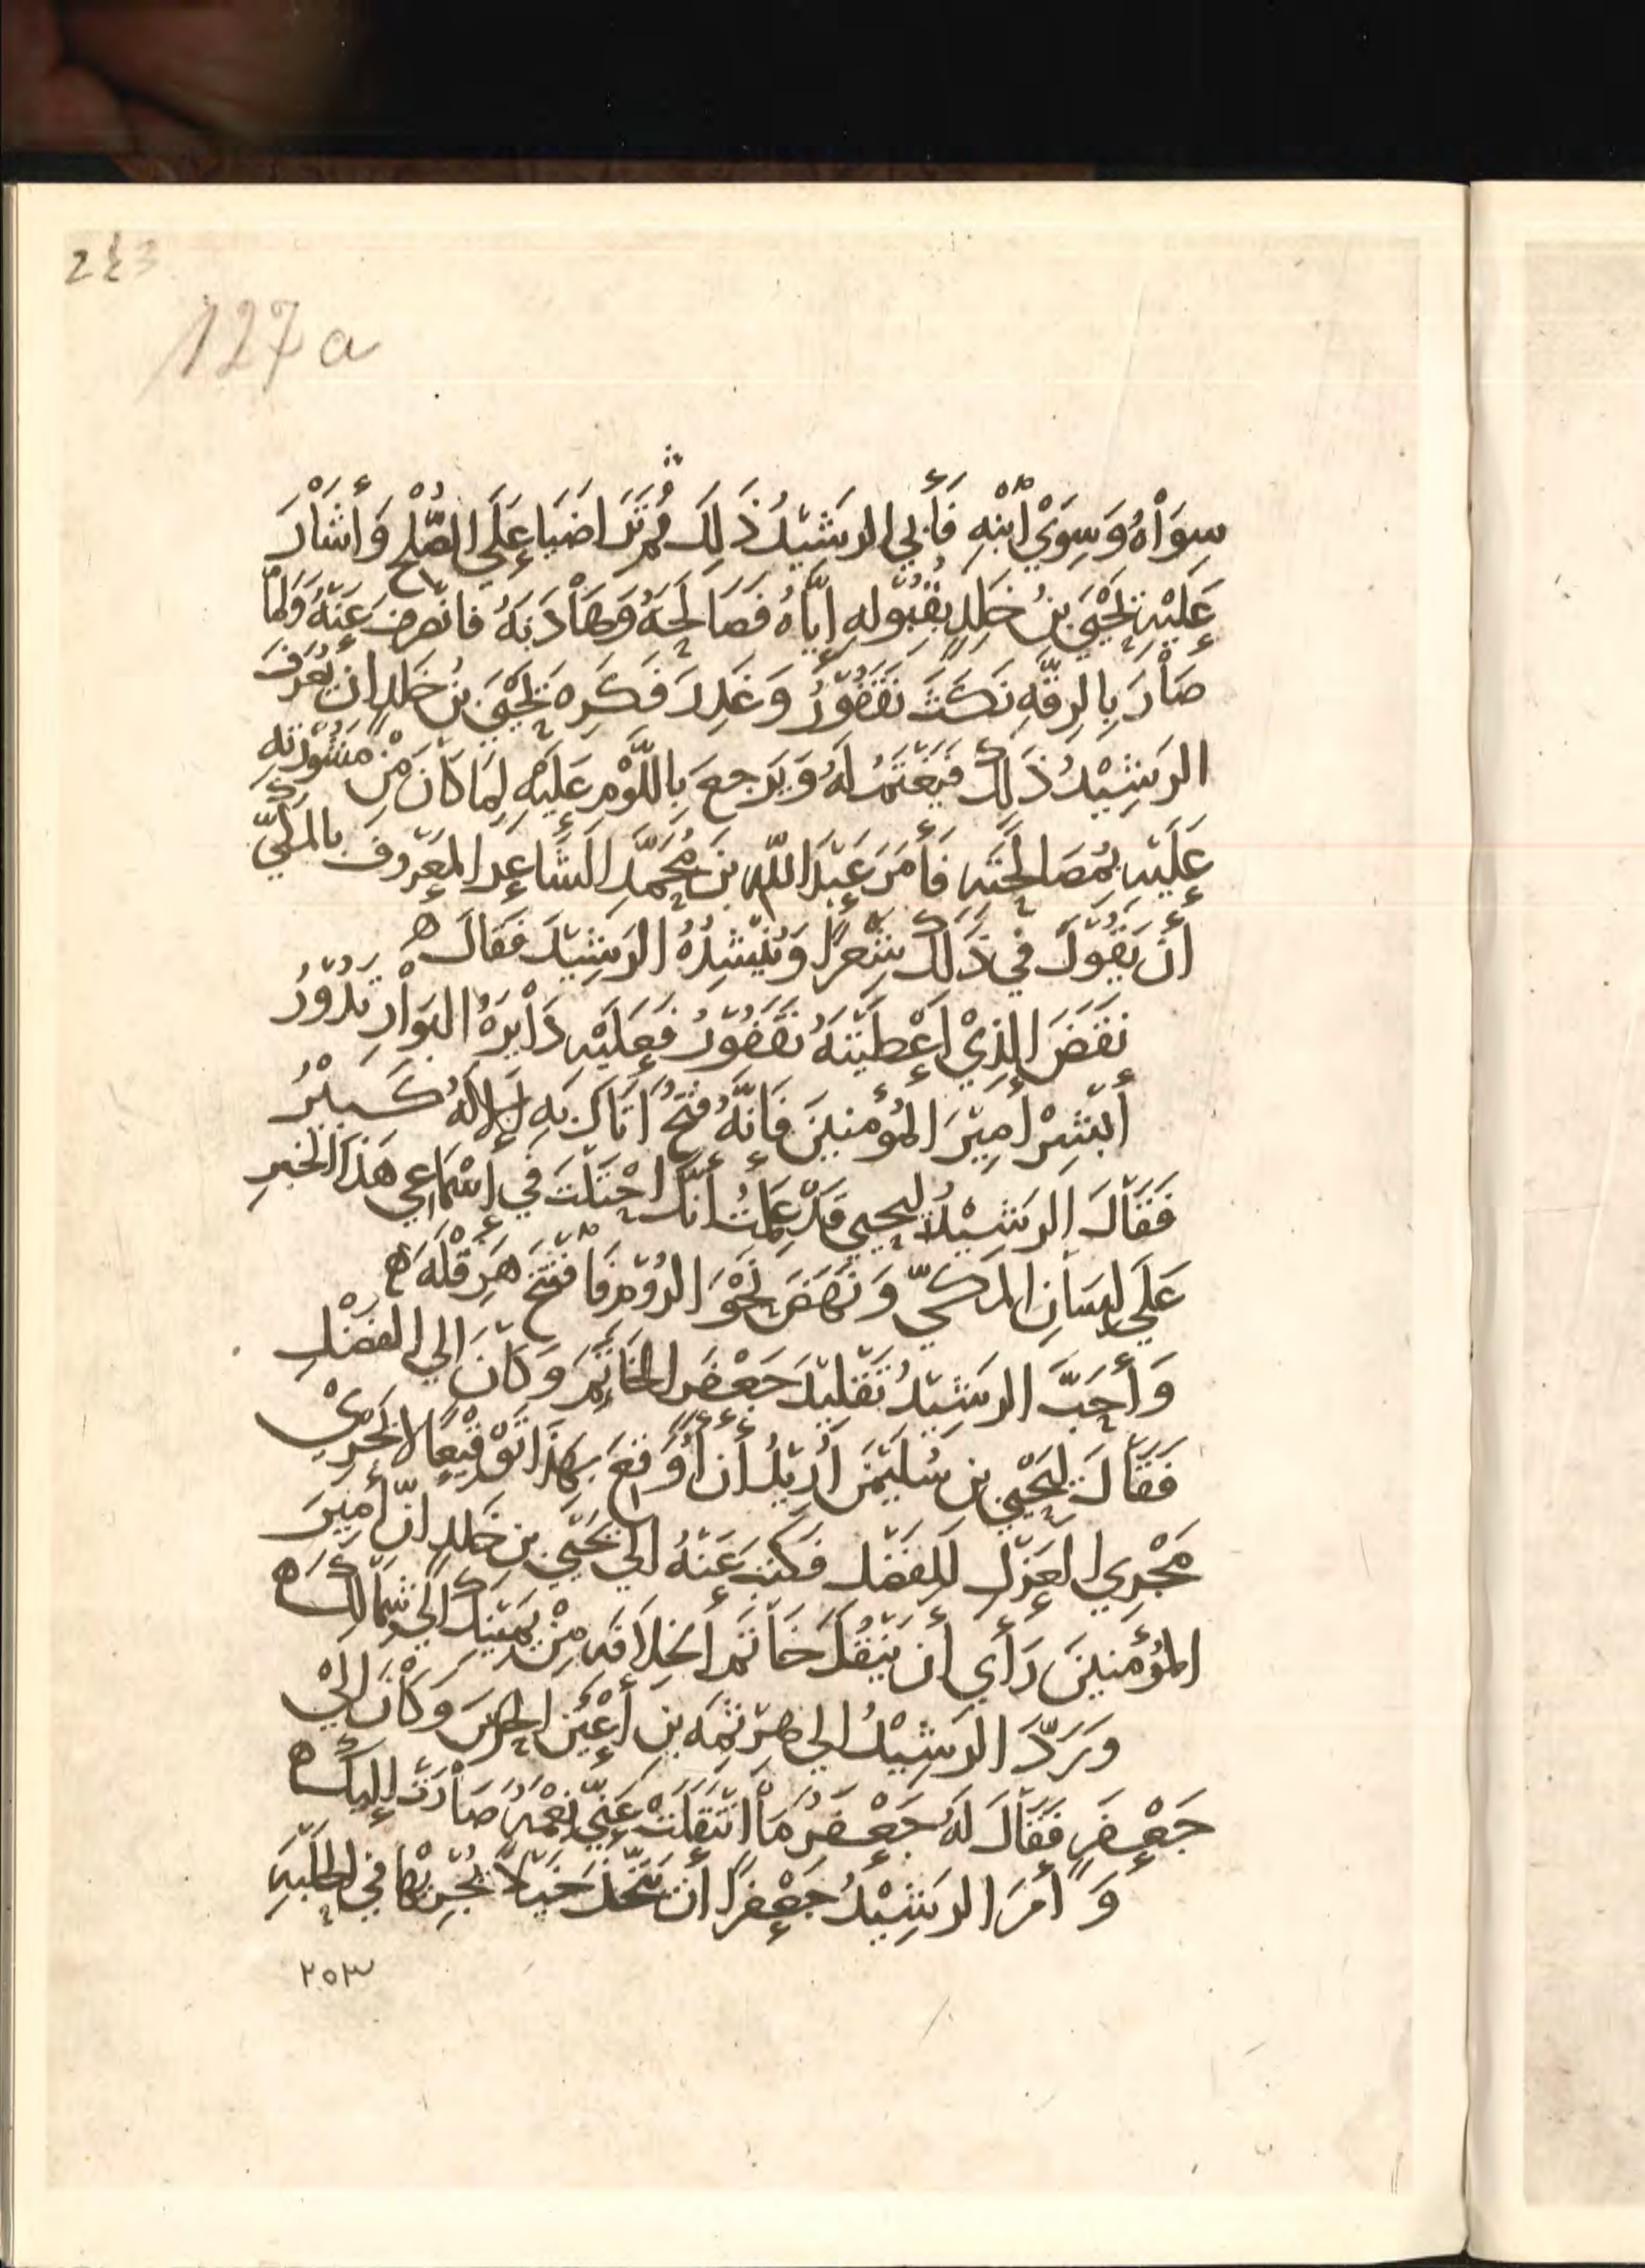 243
127a
سِوَاهُ وَسِوَيْ اٌبْنِهِ فَأَبَي الرَشيْدُ ذَلِكَ ثُمَّ تَرَاضَيَا عَلَي الصُّلْحِ وَأَشَارَ
عَلَيْهِ يَحْيَي بنُ خَلِدٍ بِقُبُوْلِهِ إِيَّاهُ فَصَالَحَهُ وَهَادَنَهُ فانْصَرفَ عَنْهُ وَلَمَّا
صَارَ بِالرقَّهِ نَكَثَ نَقَفُوْرُ وَغَدرَ فَكَرِهَ يَحْيَي بنُ خَلدٍ ان يُعَرفَ
الرَشِيْدُ ذَلِكَ فَيَغْتَمُ لَهُ وَيَرجعَ بِاللَّوْمِ عَلَيْهِ لِمَا كَانَ مِنْ مَشُوْرَتهِ
عَلَيْهِ بِمُصَالَحَتِهِ فَأَمَرَ عَبْدَ اللّهِ بنَ مُحَمَّدٍ الشَاعِرَ المعَرُوفَ بالمَكيّ
أَنْ يَقُوْلَ فيْ ذَلِكَ شِعرًا وَيُنْشِدُهُ الرَشِيْدَ فَقَالَ ه
نَقَضَ الذِيْ أَعْطَيْتَهُ نَقَفُوْرُ فَعَلَيْهِ دَايِرَهُ البَوَارِ تَدُوْرُ
أَبْشِرْ أَمِيْرَ المُؤمنِيْنَ فَإِنَّهُ فَتْحٌ اَتَاكَ بَهِ إِلَالَهُ كَبيْرُ
فَقَالَ الرَشيْدُ ليحيي قَدْ عَلمتُ أَنَّكَ احْتَلْتَ فيْ إِسْمَاعي هَذَا الخبرِ
عَلَي لِسَانِ المَكيّ وَنَهَضَ نَحْوَ الرُوْمِ فَافْتَتَحَ هِرَقْلَهَ ه
وَأَحَبَّ الرَشيْدُ تَقْلِيْدَ جَعْفَرٍ الخَاتِمَ وَكَانَ اِلي الفَضْلِ
فَقَالَ لِيَحْيَي بنِ سُلَيْمنَ أُرِيْدُ أَن أُوَقعَ بِهَذَا تَوْقيْعًا لا يَجْرِيْ
مَجْرِي العَزْلِ لِلفَضْلِ فَكَتَبَ عَنْهُ اِلَي يَحْيَي بنِ خَلدٍ انّ أَمِيْرَ
المُؤمنيْنَ رَأَي أن يَنْقُلَ خَاتَمَ الخِلَافَهِ مِنْ يَمَيْنكَ اِلي شِمَالِكَ ه
وَرَدَّ الرَشِيْدُ اِلي هَرْثَمهَ بنِ أَعْيَن الحَرَسَ وَكَانَ اِليْ
جَعْفَرٍ فَقَالَ لَهُ جَعْفَرٌ مَا انْتَقَلَتْ عَنِّي نِعْمهٌ صَارَتْ إِلَيكَ ه
وَأَمَرَ الرَشِيْدُ جَعْفرًا ان يَتَّخذَ خَيْلًا يُجْرِيْهَا في الحَلْبَهِ
٢٥٣